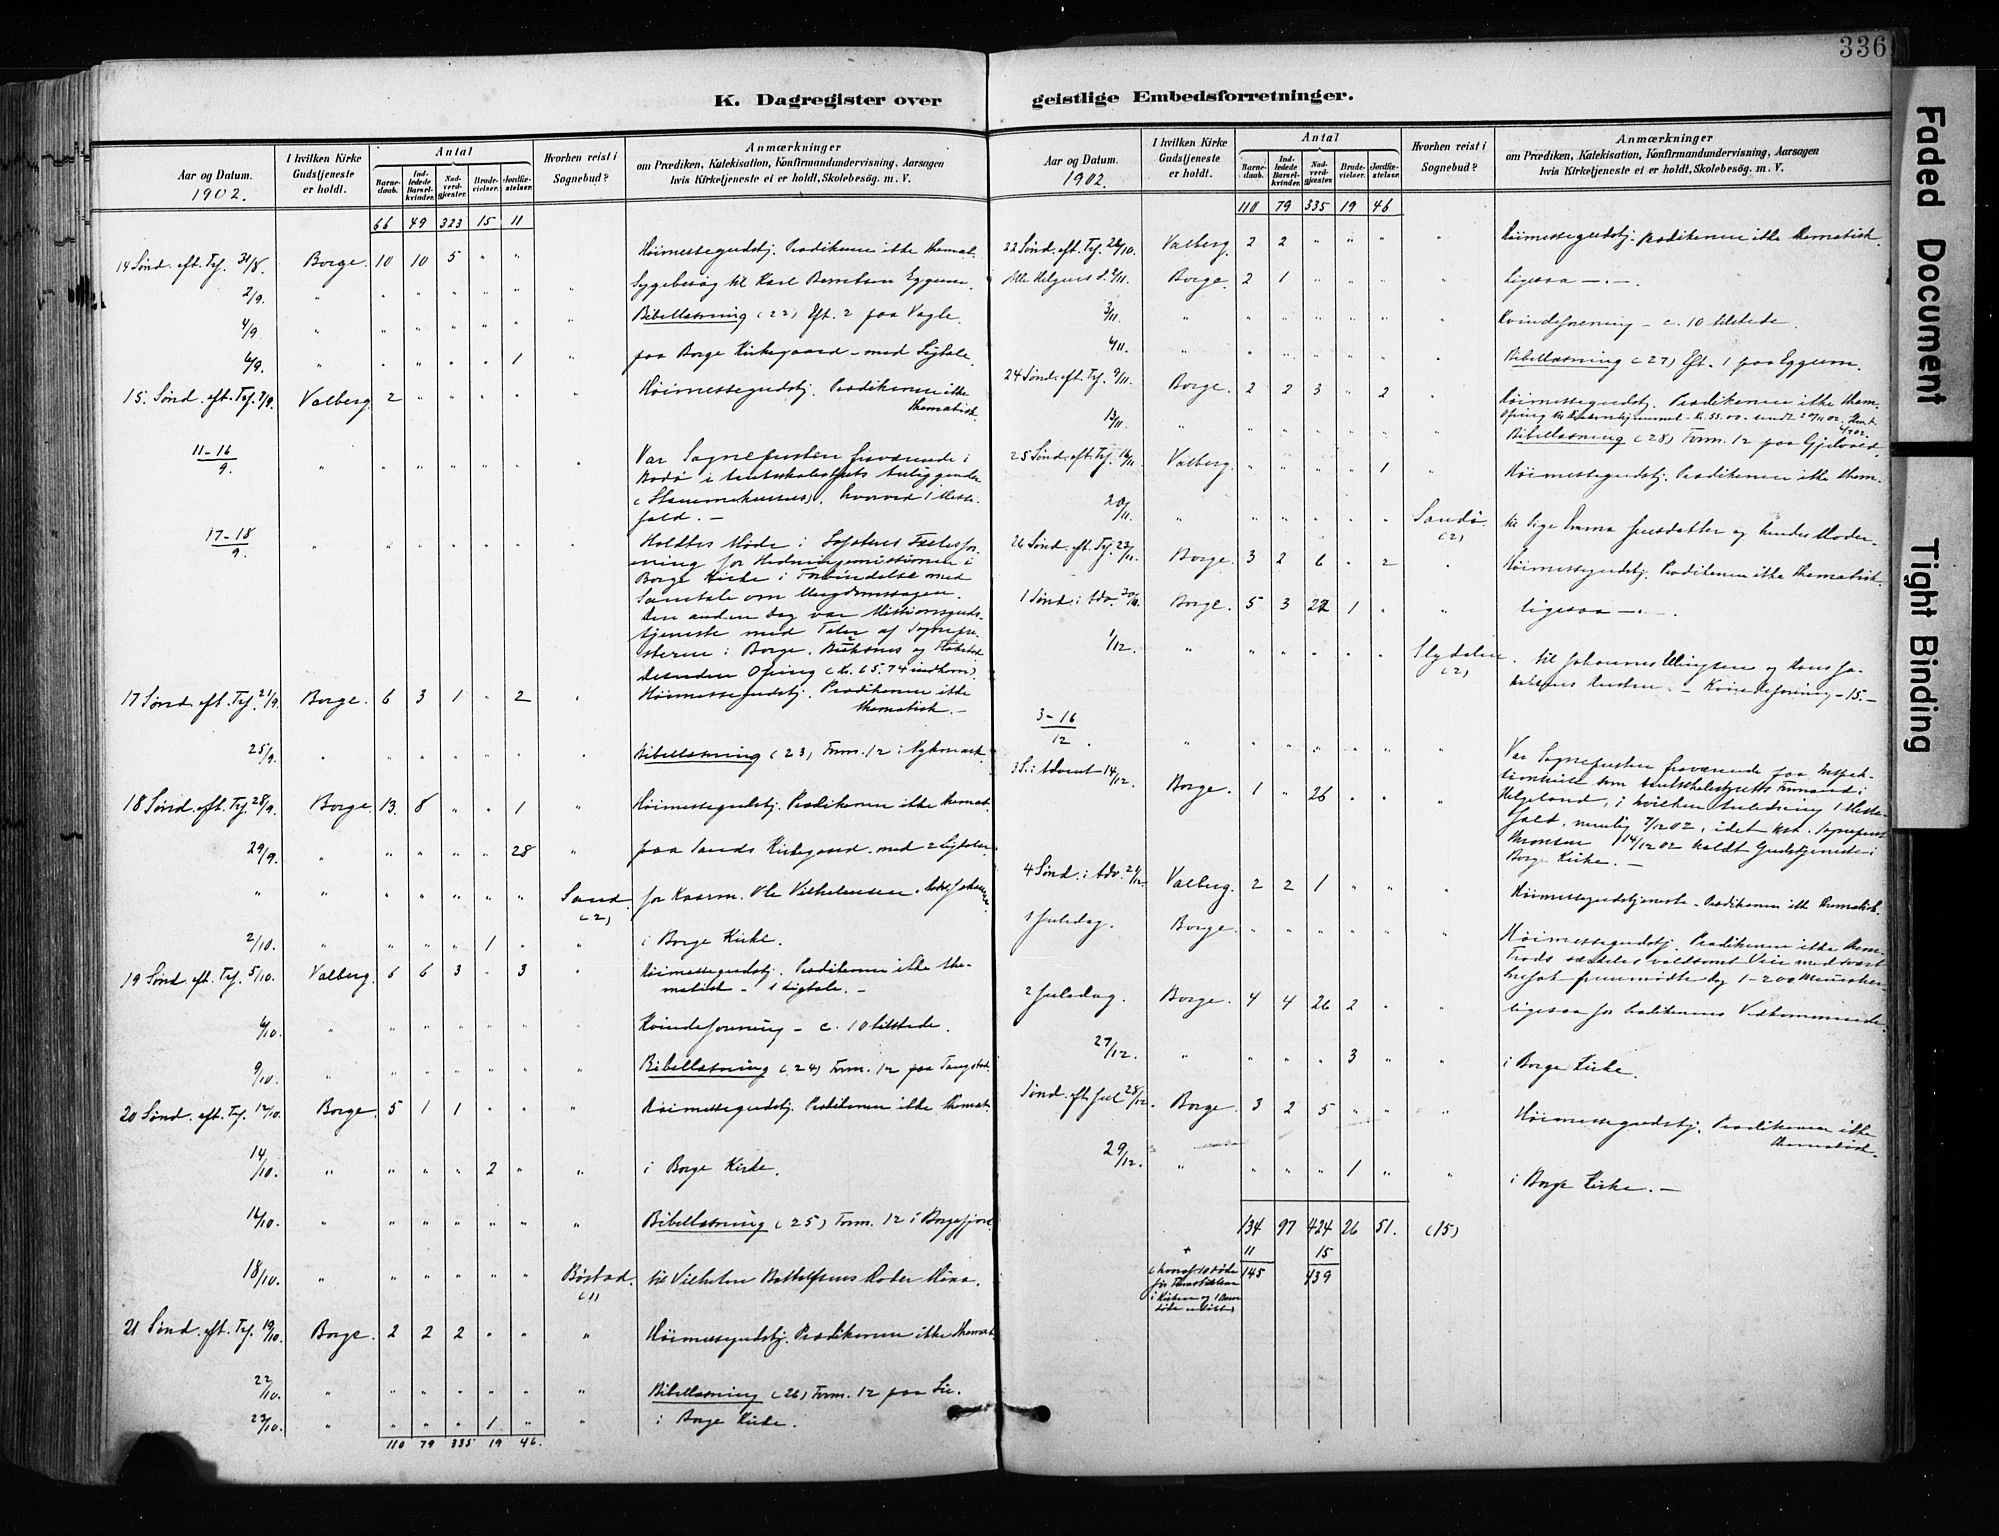 336
K. Dagregister over geistlige Embedsforretninger.
Aar og Datum. 1902.
I hvilken Kirke Gudstjeneste er holdt.
Antal
Barnedaab.
Indledede Barselkvinder.
Nadverdgjester.
Brudevielser.
Jordfæstelser.
Hvorhen reist i Sognebud?
Anmærkninger
om Prædiken, Katekisation, Konfirmandundervisning, Aarsagen
hvis Kirketjeneste ei er holdt, Skolebesøg. m. V.
66 49 323 15 11
14 Sønd. eft. Trf. 31/8. Borge. 10 10 5 " " Høimessegudstj. Prædikenen ikke themat.
2/9. " " " " " " " Sygebesøg til Karl Berntsen Eggum.
4/9 " " " " " " " Bibellæsning (22) Eft. 2 paa Vagle.
6/9. " " " " " 1 " paa Borge Kirkegaard - med Ligtale.
15. Sønd. eft. Trf. 7/9. Valberg. 2 " " " " " Høimessegudstj. Prædikenen ikke
thematisk.
11-16/9. " " " " " " " Var Sognepresten fraværende i
Bodø i Amtsskolestyrets Anliggende
hvorved 1 Messe-
fald. -
17-18/9. " " " " " " " Holdtes Møde i Lofotens Fællesfor-
ening for Hedningemissionen i
Borge Kirke i Forbindelse med
Samtale om Ungdomssagen.
Den anden Dag var Missionsguds-
tjeneste med Taler af Sognepre-
sterne i Borge, Buksnes og
desuden Ofring (Kr. 65.74 indkom).
17 Sønd. eft. Trf. 21/9. Borge. 6 3 1 " 2 " Høimessegudstj. Prædikenen ikke
thematisk. -
25/9. " " " " " " " Bibellæsning (23) Form. 12 i
18 Sønd. eft. Trf. 28/9. Borge. 13. 8 " " 1 " Høimessegudstj. Prædikenen ikke themat.
29/9. " " " " " 28 " paa Sands Kirkegaard med 2 Ligtaler.
" " " " " " " Sand. (2) for Kaarm. Ole Vilhelmsen
2/10. " " " " 1 " " i Borge Kirke.
19 Sønd. eft. Trf. 5/10. Valberg. 6 6 3 " 3 " Høimessegudstj. Prædikenen ikke the-
matisk - 1 Ligtale. -
6/10. " " " " " " " Kvindeforening - c. 10 tilstede.
9/10. " " " " " " " Bibellæsning (24) Form. 12 paa Tangstad.
20 Sønd. eft. Trf. 12/10. Borge. 5 1 1 " " " Høimessegudstj. Prædikenen ikke themat.
14/10. " " " " 2 " " i Borge Kirke.
16/10. " " " " " " " Bibellæsning (25) Form. 12 i Borgefjord.
18/10. " " " " " " Bøstad. (1) til Vilhelm
21 Sønd. eft. Trf. 19/10. Borge. 2 2 2 " " " Høimessegudstj. Prædikenen ikke themat.
22/10. " " " " " " " Bibellæsning (26) Form. 12 paa Lie.
23/10. " " " " 1 " " i Borge Kirke.
110 79 335 19 46.
Aar og Datum. 1902.
I hvilken Kirke Gudstjeneste er holdt.
Antal
Barnedaab.
Indledede Barselkvinder.
Nadverdgjester.
Brudevielser.
Jordfæstelser.
Hvorhen reist i Sognebud?
Anmærkninger
om Prædiken, Katekisation, Konfirmandundervisning, Aarsagen
hvis Kirketjeneste ei er holdt, Skolebesøg. m. V.
110 79 335 19 46
22 Sønd. eft. Trf. 26/10. Valberg. 2 2 " " " " Høimessegudstj. Prædikenen ikke thematisk.
Alle Helgens D. 2/11. Borge. 2 1 " " " " Ligesaa -.-
3/11. " " " " " " " Kvindeforening - c. 10 tilstede.
6/11. " " " " " " " Bibellæsning (27) Eft. 1 paa Eggum.
24 Sønd. eft. Trf. 9/11. Borge. 2 2 3 " 2 " Høimessegudstj. Prædikenen ikke them.
13/11. " " " " " " " Bibellæsning (28) Form. 12 paa Gjelvold.
25 Sønd. eft. Trf. 16/11. Valberg. " " " " 1 " Høimessegudstj. Prædikenen ikke them.
20/11. " " " " " " Sandø (2) til Pige Emma og hendes Moder.
26 Sønd. eft. Trf. 23/11. Borge. 3 2 6 " 2 " Høimessegudstj. Prædikenen ikke thematisk.
1 Sønd. i Adv. 30/11. Borge. 5 3 22 1 " " Ligesaa -.-
1/12. " " " " " " Slydalen. (2) til Johannes Ellingsen og
Kvindeforening - 15. -
3-16/12. " " " " " " " Var Sognepresten fraværende paa Inspek-
tionsreise som Amtsskolestyrets Formand i
Helgeland, i hvilken Anledning 1 Messe-
fald, nemlig 7/12 02, idet Sogneprest
14/12 02 holdt Gudstjeneste i
Borge Kirke. -
3 S. i Advent 14/12. Borge. 1 " 26 " " "
4 Sønd. i Adv. 21/12. Valberg. 2 2 1 " " " Høimessegudstjeneste - Prædikenen ikke thematisk.
1 Juledag. Borge. " " " " " " Høimessegudstj. Prædikenen ikke them.
Trods særdeles voldsomt Veir med svært
Snefok fremmødte dog 1-200 Mennesker.
2 Juledag. Borge. 4 4 26 2 " " Ligesaa for Prædikenens Vedkommende.
27/12. " " " " 3 " " i Borge Kirke.
Sønd. eft. Jul 28/12. Borge. 3 2 5 " " " Høimessegudstj. Prædikenen ikke
thematisk.
29/12. " " " " 1 " " i Borge Kirke. -
134 97 424 26 51. (15)
+ 11 15
145 439
Faded Document
Tight Binding